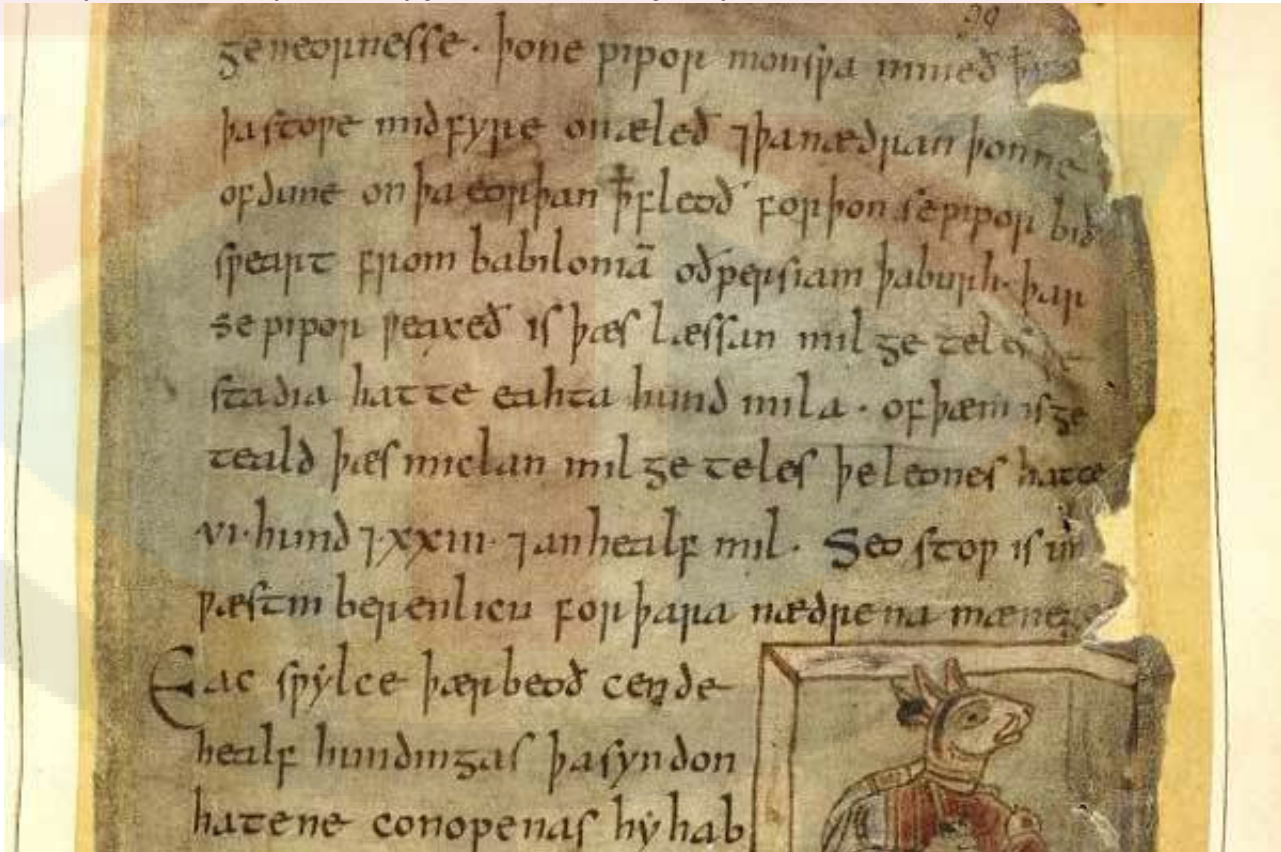 geneornesse · þone pipor mon sƿa nimeð
þa stoƿe mid fyre onæleð ⁊ þa nædran þonne
ofdune on þa eorþan ꝥ fleoð forþon se pipor bið
sƿeart from babiloniā oð persiam þa burh · þar
se pipor ƿeaxeð is þæs læssan mil ge teles
stadia hatte eahta hund mila · of þæm is ge
teald þæs miclan mil ge teles þe leones hatte
vi · hund ⁊ · xxiii · ⁊ an healf mil · Seo stoƿ is
ƿæstm berenlicu for þara nædrena
Eac sƿẏlce þær beoð cende
healf hundingas þa syndon
hatene conopenas hẏ hab